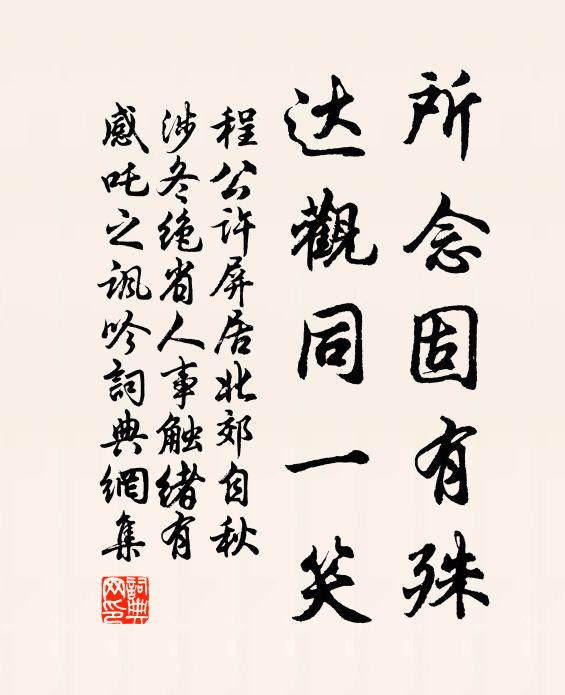 所念固有殊
达觀同一笑
程公许屏居北郊自秋
涉冬绝省人事触绪有
感吒之讽吟詞典網集
詞典
网印